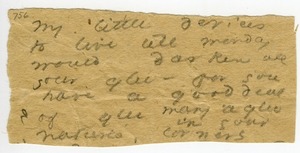 756
My little devices
to live till monday
would darken all
your glee - for you
have a good deal
& of glee many a glee
in your
natures corners